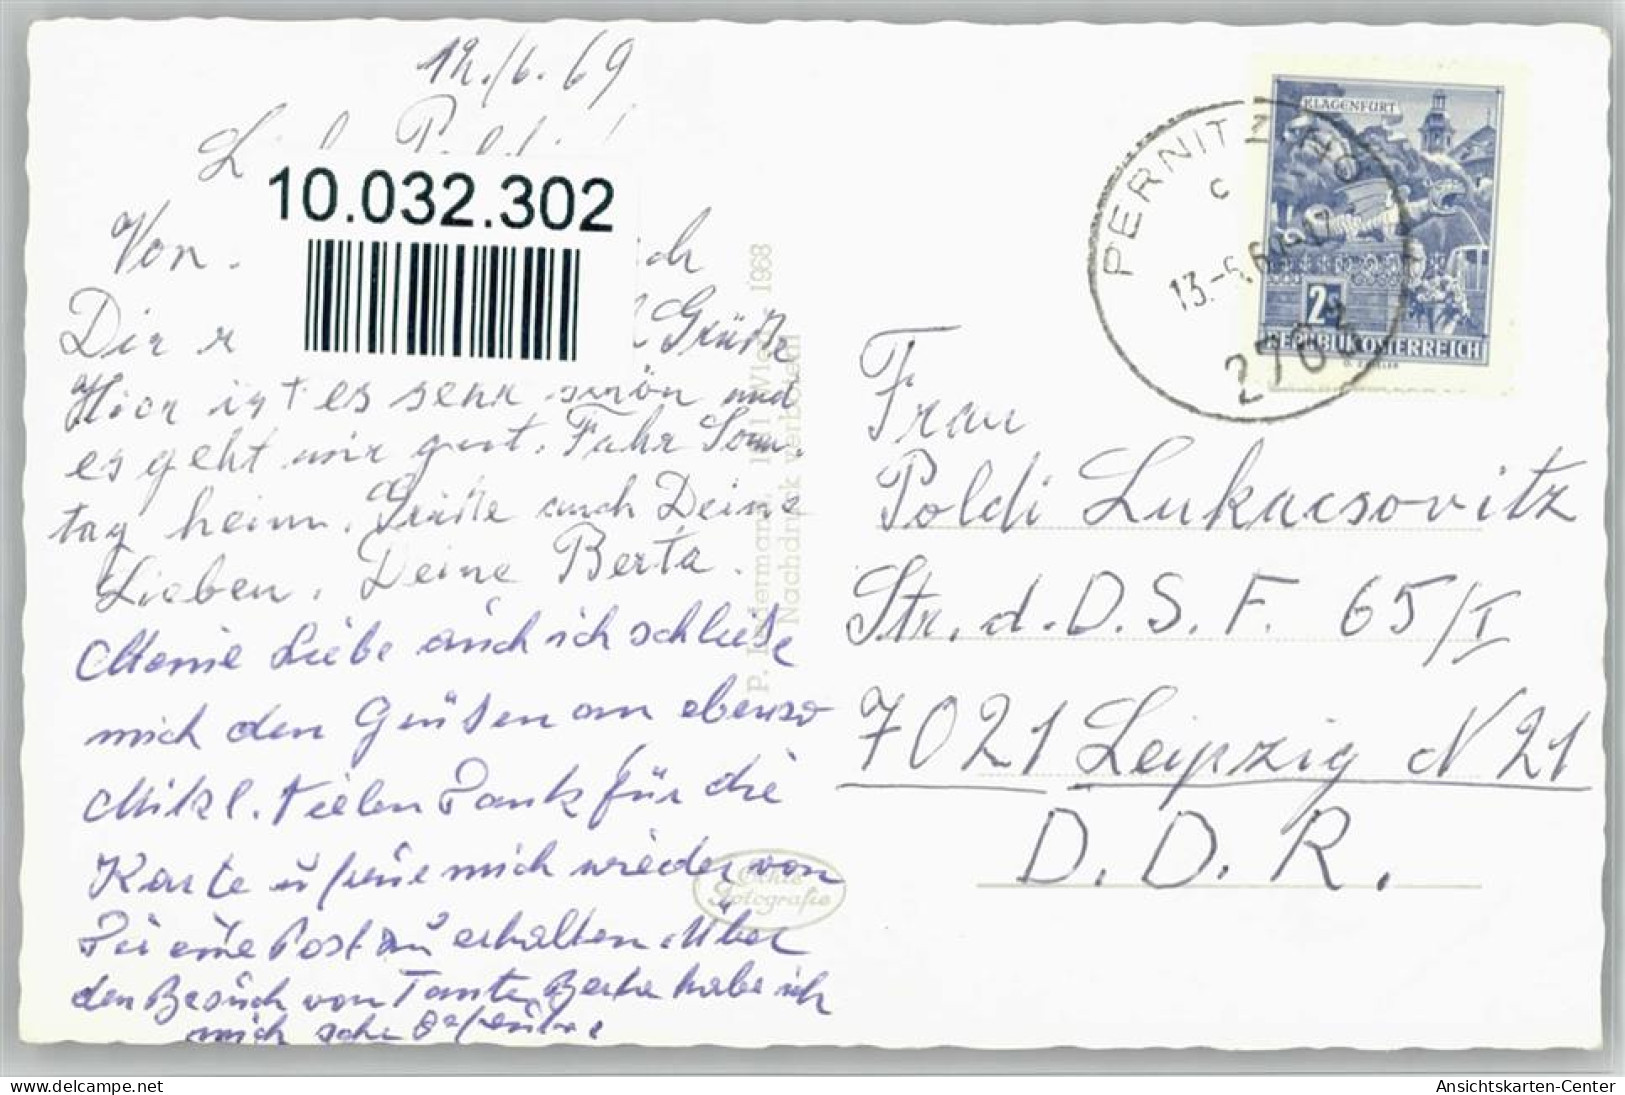 12./6. 69
10.032.302
Von
Dir
Grüße
Hier ist es sehr schön und
es geht mir gut. Fahr Sonn-
tag heim. Grüße auch Deine
Lieben. Deine Berta.
Liebe auch ich schließe
mich den Grüßen an ebenso
Mikl. Vielen Dank für die
Karte u freue mich wieder von
Dir eine Post zu erhalten. Über
den Besuch von Tante Berta habe ich
mich sehr gefreut
P. Ledermann, 1011 Wien, 1968
Nachdruck verboten
Echte
Fotografie
KLAGENFURT
2
REPUBLIK ÖSTERREICH
PERNITZ, NÖ
c
13.-6.69-17
2763
Frau
Poldi Lukacsovitz
Str. d. D. S. F. 65/I
7021 Leipzig N 21
D. D. R.
www.ansichtskarten-center.de
Ansichtskarten-Center